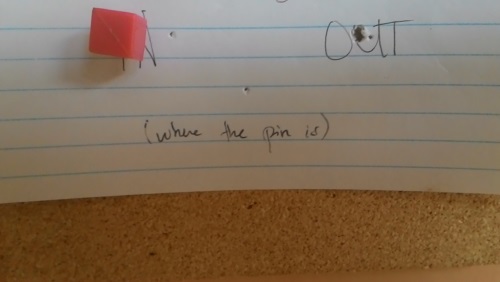 IN OUT
(where the pin is)